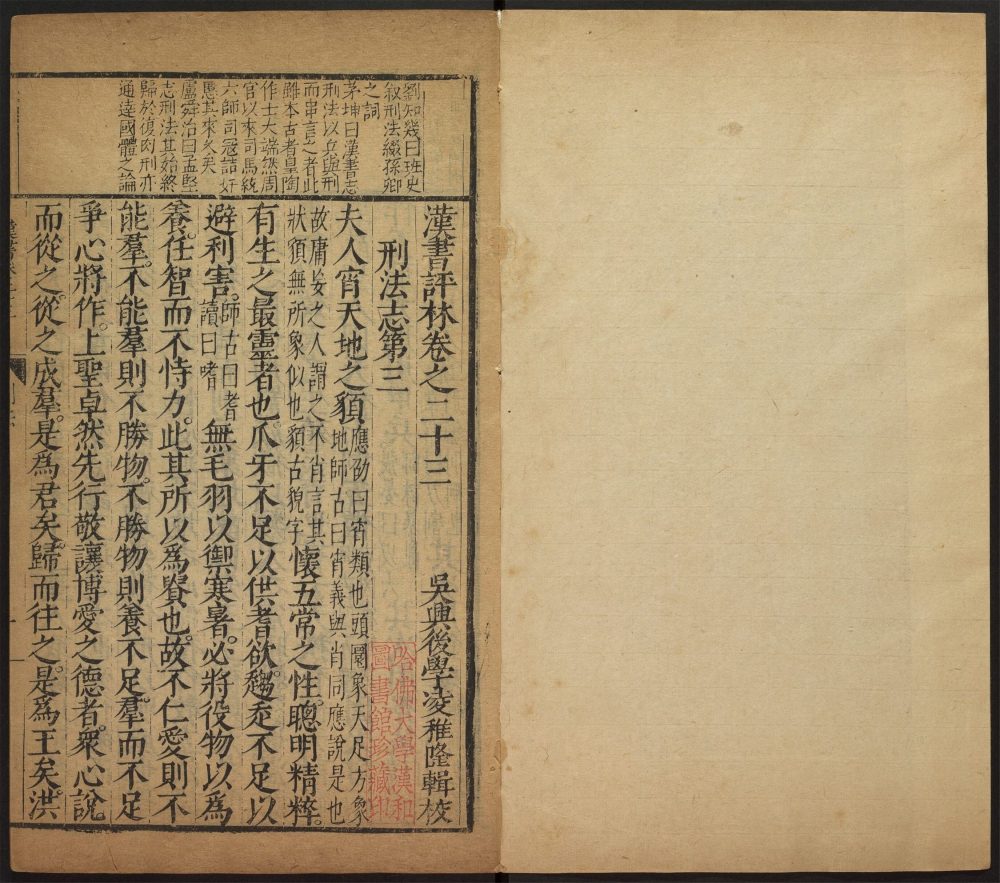 劉知幾曰班史
叙刑法綴孫卿
之詞
茅坤曰漢書志
刑法以兵與刑
而串言之者此
雖本古者皐陶
作士大端然周
官以來司馬統
六師司冦詰奸
慝其來久矣
盧舜治曰孟堅
志刑法其始終
歸於復肉刑亦
通達國體之論
漢書評林卷之二十三 吳興後學凌稚隆輯校
刑法志第三
夫人宵天地之䫉應劭曰宵類也頭圜象天足方象
地師古曰宵義與肖同應說是也
故庸妄之人謂之不肖言其
狀䫉無所象似也䫉古貌字懷五常之性聰明精粹
有生之最靈者也爪牙不足以供耆欲趨走不足以
避利害師古曰耆
讀曰嗜無毛羽以禦寒暑必將役物以爲
養任智而不恃力此其所以爲貴也故不仁愛則不
能羣不能羣則不勝物不勝物則養不足羣而不足
爭心將作上聖卓然先行敬讓博愛之德者衆心說
而從之從之成羣是爲君矣歸而往之是爲王矣洪
哈佛大學漢和
圖書館珍藏印